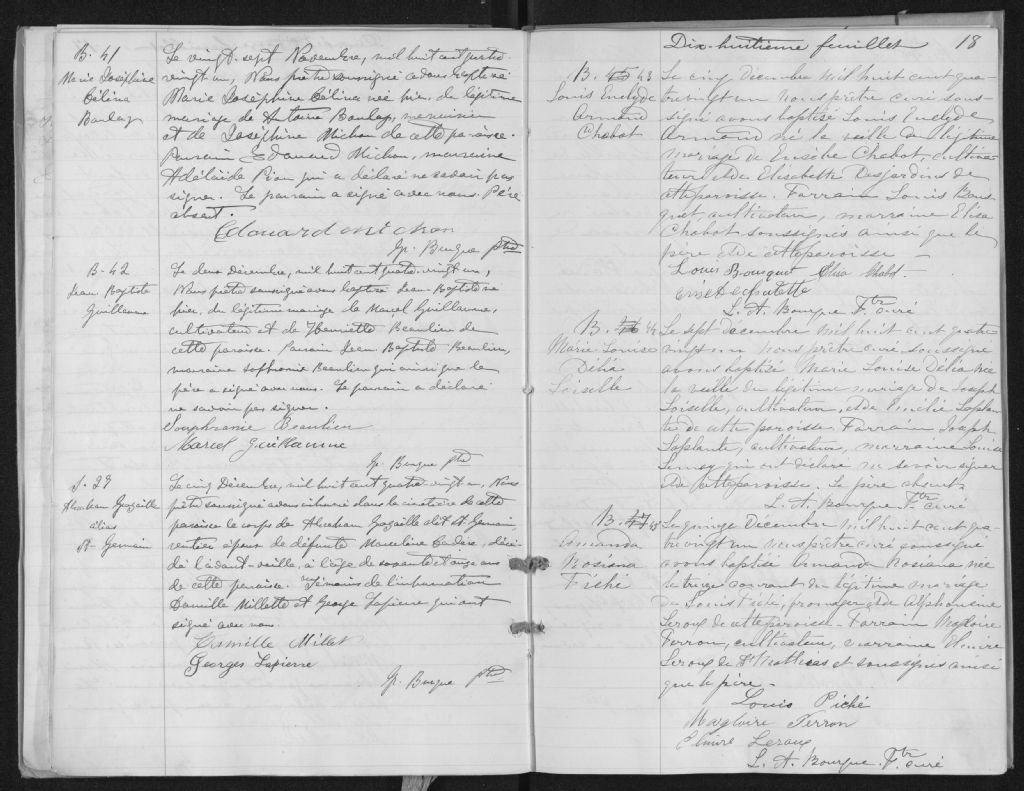 B. 41
Marie Joséphine
Célina
Boulay
Le vingt-sept Novembre, mil huit cent quatre
vingt-un, Nous prêtre soussigné avons baptisé
Marie Joséphine Célina née hier, du légitime
mariage de Antoine Boulay, menuisier
et de Joséphine Michon de cette paroisse.
Parrain Edouard Michon, marraine
Adélaïde Pion qui a déclaré ne savoir pas
signer. Le parrain a signé avec nous. Père
absent.
Edouard Michon
Ptre
B. 42
Jean Baptiste
Guillaume
Le deux Décembre, mil huit cent quatre-vingt-un,
Nous prêtre soussigné avons baptisé Jean-Baptiste né
hier, du légitime mariage de Marcel Guillaume,
cultivateur et de Henriette Beaulieu de
cette paroisse. Parrain Jean Baptiste Beaulieu,
marraine Sophronie Beaulieu qui ainsi que le
père a signé avec nous. Le parrain a déclaré
ne savoir pas signer.
Souphranie Beaulieu
Marcel Guillaume
Ptre
S. 23
Abraham Gazaille
alias
St-Germain
Le cinq Décembre, mil huit cent quatre-vingt-un, Nous
prêtre soussigné avons inhumé dans le cimetière de cette
paroisse le corps de Abraham Gazaille dit St Germain,
rentier époux de défunte Marceline Cadere, décé-
dé l'avant-veille, à l'âge de soixante et onze ans
de cette paroisse. Témoins de l'inhumation
Camille Millette et George Lapierre qui ont
signé avec nous.
Camille Milet
Georges Lapierre
Ptre
Dix-huitième feuillet 18
B. 45 43
Louis Euclyde
Armand
Chabot
Le cinq Décembre mil huit cent qua-
tre vingt un nous prêtre curé sous-
signé avons baptisé Louis Euclyde
Armand né la veille du légitime
mariage de Eusèbe Chabot, cultiva-
teur et de Elisabeth Desjardins de
cette paroisse. Parrain Louis Bous-
quet, cultivateur, marraine Elisa
Chabot soussignés ainsi que le
père et de cette paroisse —
Louis Bousquet Elisa Chabot
L. A. Bourque Ptre curé
B. 46 44
Marie Louise
Délia
Loiselle
Le sept Décembre mil huit cent quatre
vingt un nous prêtre curé soussigné
avons baptisé Marie Louise Délia née
la veille du légitime mariage de Joseph
Loiselle, cultivateur, et de Emélie Laplan-
te de cette paroisse. Parrain Joseph
Laplante, cultivateur, marraine Louise
qui ont déclaré ne savoir signer
et de cette paroisse. Le père absent.
L. A. Bourque Ptre curé
B. 47 45
Amanda
Rosiana
Piché
Le quinze Décembre mil huit cent qua-
tre vingt un nous prêtre curé soussigné
avons baptisé Amanda Rosiana née
le treize courant du légitime mariage
de Louis Piché, fromager, et de Alphonsine
Leroux de cette paroisse - Parrain Magloire
Ferron, cultivateur, marraine Elmire
Leroux de St Mathias et soussignés ainsi
que le père —
Louis Piché
Magloire Ferron
Elmire Leroux
L. A. Bourque. Ptre curé